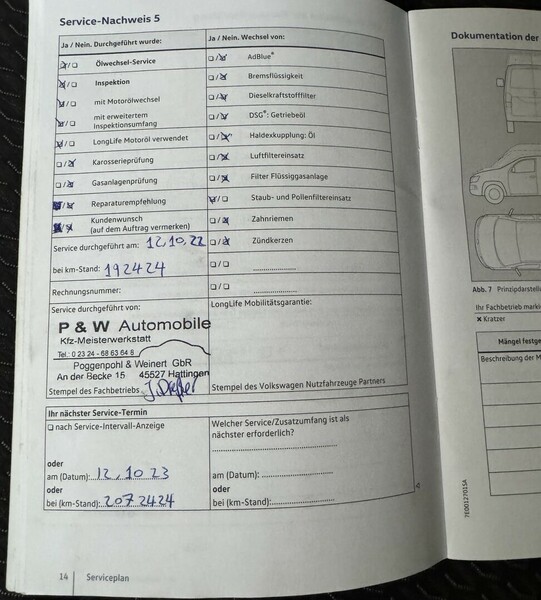 Service-Nachweis 5
Ja / Nein. Durchgeführt wurde:
Ölwechsel-Service
Inspektion
mit Motorölwechsel
mit erweitertem
Inspektionsumfang
LongLife Motoröl verwendet
Karosserieprüfung
Gasanlagenprüfung
Reparaturempfehlung
Kundenwunsch
(auf dem Auftrag vermerken)
Service durchgeführt am: 12.10.22
bei km-Stand: 192424
Rechnungsnummer:
Service durchgeführt von:
P & W Automobile
Kfz-Meisterwerkstatt
Tel.: 0 23 24 - 68 63 64 8
Poggenpohl & Weinert GbR
An der Becke 15 45527 Hattingen
Stempel des Fachbetriebs
Ja / Nein. Wechsel von:
AdBlue*
Bremsflüssigkeit
Dieselkraftstofffilter
DSG*: Getriebeöl
Haldexkupplung: Öl
Luftfiltereinsatz
Filter Flüssiggasanlage
Staub- und Pollenfiltereinsatz
Zahnriemen
Zündkerzen
LongLife Mobilitätsgarantie:
Stempel des Volkswagen Nutzfahrzeuge Partners
Ihr nächster Service-Termin
nach Service-Intervall-Anzeige
oder
am (Datum): 12.10 23
oder
bei (km-Stand): 2072424
Welcher Service/Zusatzumfang ist als
nächster erforderlich?
am (Datum):
oder
bei (km-Stand):
14 Serviceplan
Dokumentation der
Abb. 7 Prinzipdarstell
Ihr Fachbetrieb marki
× Kratzer
Mängel festge
Beschreibung der M
7E0012701SA